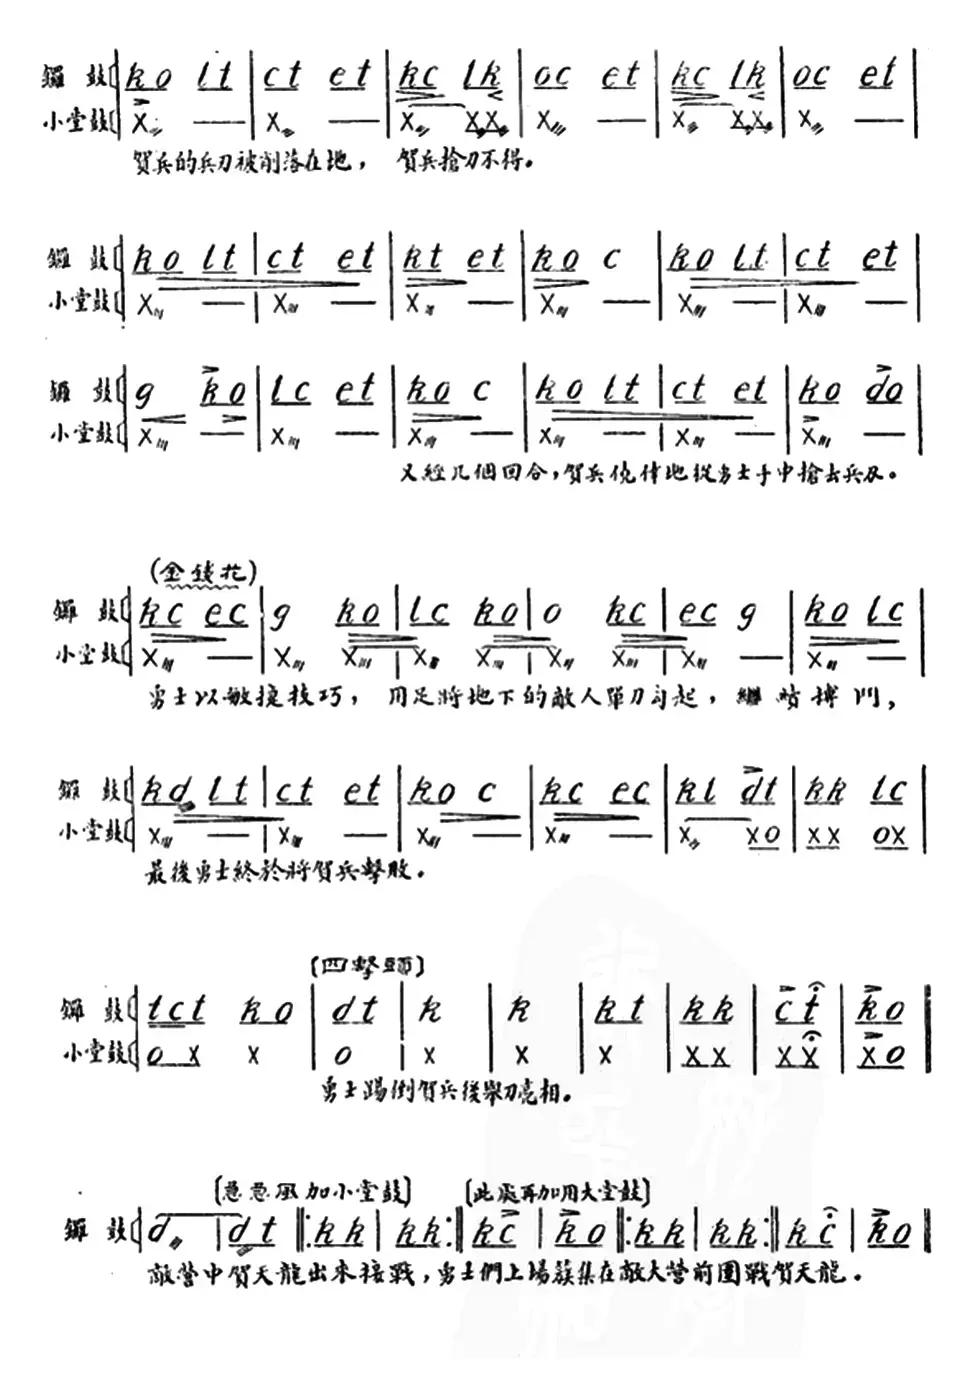 鑼鼓 ko lt | ct et | kc lk | oc et | kc lk | oc et |
小堂鼓 X — | X — | X XX | X — | X XX | X — |
賀兵的兵刃被削落在地， 賀兵搶刀不得。
鑼鼓 ko lt | ct et | kt et | ko c | ko lt | ct et |
小堂鼓 X — | X — | X — | X — | X — | X — |
鑼鼓 g ko | lc et | ko c | ko lt | ct et | ko do |
小堂鼓 X — | X — | X — | X — | X — | X — |
又經几個回合，賀兵僥倖地從勇士手中搶去兵刃。
(金錢花)
鑼鼓 kc ec | g ko | lc ko | o kc | ec g | ko lc |
小堂鼓 X — | X X | X X | X X | X — | X — |
勇士以敏捷技巧， 用足將地下的敵人單刀勾起，繼續搏鬥，
鑼鼓 kd lt | ct et | ko c | kc ec | kl dt | kk lc |
小堂鼓 X — | X — | X — | X — | X XO | XX OX |
最後勇士終於將賀兵擊敗。
[四擊頭]
鑼鼓 tct ko | dt | k | k | kt | kk | ct | ko ‖
小堂鼓 O X X | O | X | X | X | XX | XX | XO ‖
勇士踢倒賀兵後舉刀亮相。
[急急風加小堂鼓] [此處再加用大堂鼓]
鑼鼓 d | dt ‖: kk | kk :‖ kc | ko ‖: kk | kk :‖ k c | ko ‖
敵營中賀天龍出來接戰，勇士們上場蔟集在敵大營前圍戰賀天龍。